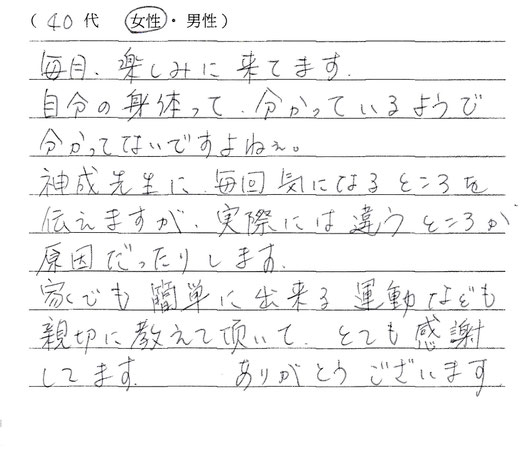 （40代 女性・男性）
毎月、楽しみに来てます。
自分の身体って、分かっているようで
分かってないですよねぇ。
神成先生に、毎回気になるところを
伝えますが、実際には違うところが
原因だったりします。
家でも簡単に出来る運動なども
親切に教えて頂いて、とても感謝
してます。 ありがとうございます。